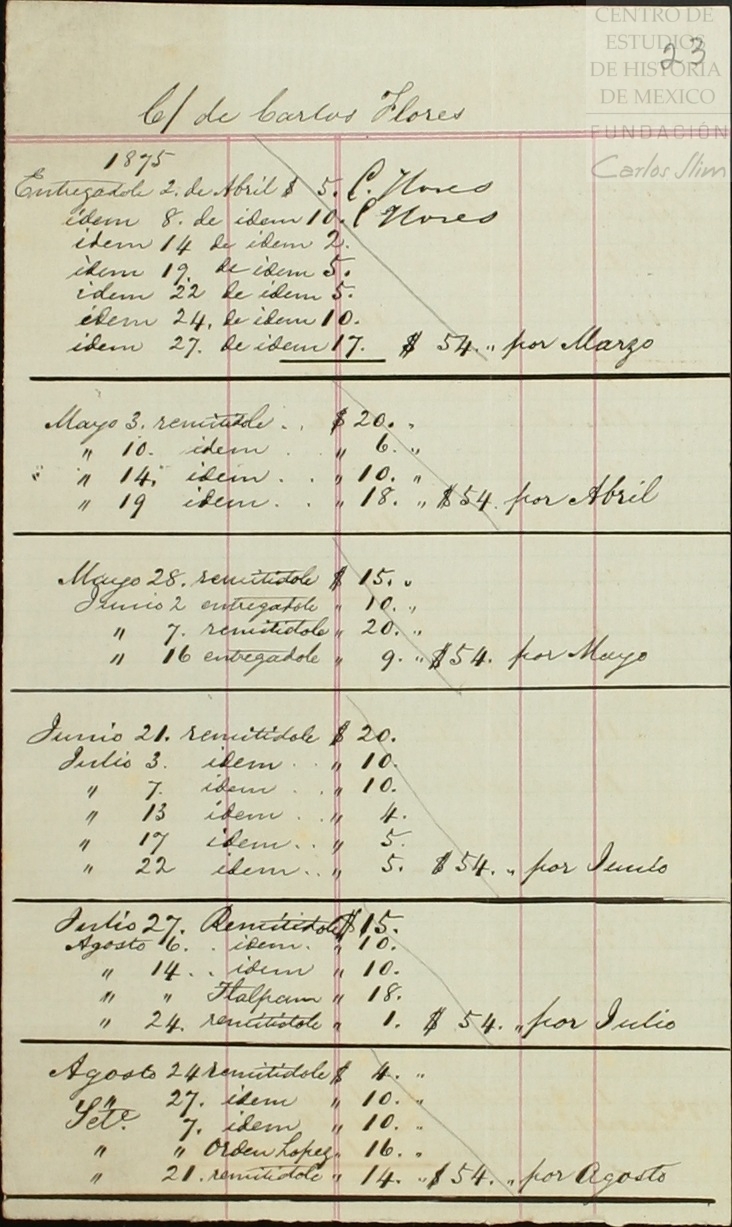 CENTRO DE
ESTUDIOS
DE HISTORIA
DE MEXICO
FUNDACIÓN
Carlos Slim
23
C/ de Carlos Flores
1875
Entregadole 2. de Abril $ 5. C. Flores
idem 8. de idem 10. C Flores
idem 14 de idem 2.
idem 19. de idem 5.
idem 22 de idem 5.
idem 24. de idem 10.
idem 27. de idem 17. $ 54. „ por Marzo
Mayo 3. remitidole . . $ 20. „
„ 10. idem . „ 6. „
„ 14. idem . . „ 10. „
„ 19 idem . . „ 18. „ $54. por Abril
Mayo 28. remitidole $ 15. „
Junio 2 entregadole „ 10. „
„ 7. remitidole „ 20. „
„ 16 entregadole „ 9. „ $54. por Mayo
Junio 21. remitidole $ 20.
Julio 3. idem . . „ 10.
„ 7. idem . . „ 10.
„ 13 idem . . „ 4.
„ 17 idem . . „ 5.
„ 22 idem . . „ 5. $54. „ por Junio
Julio 27. Remitidole $ 15.
Agosto 6. . idem . „ 10.
„ 14. . idem „ 10.
„ „ Tlalpam „ 18.
„ 24. remitidole „ 1. $ 54. „ por Julio
Agosto 24 remitidole $ 4. „
„ 27. idem „ 10. „
Sete. 7. idem „ 10. „
„ „ Orden Lopez „ 16. „
„ 21. remitidole „ 14. „ $54. „ por Agosto